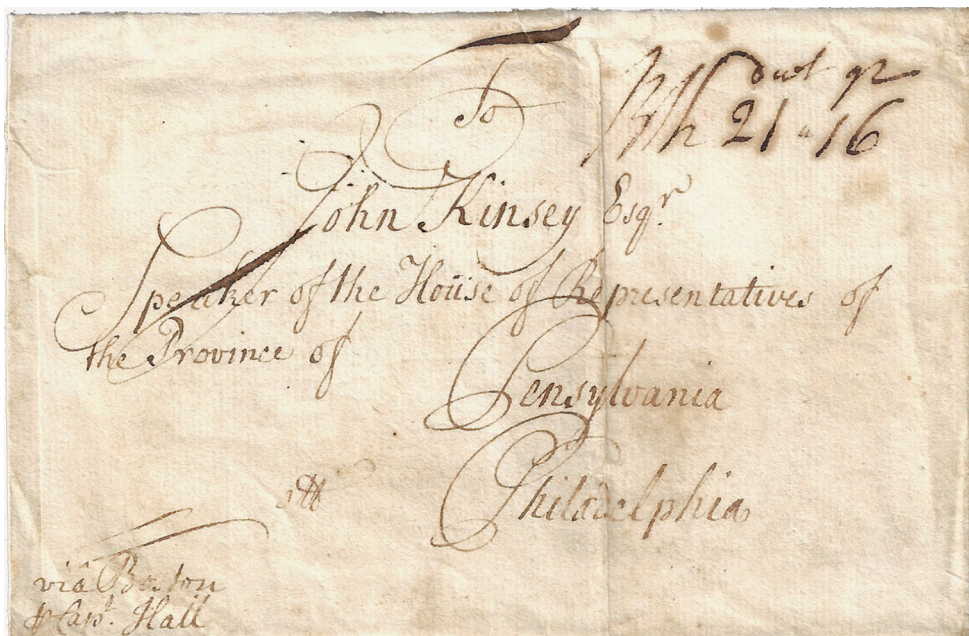 To
dwt gr
Ph 21 " 16
John Kinsey Esqr
Speaker of the House of Representatives of
the Province of
Pensylvania
att
Philadelphia
via Boston
⅌ Capt. Hall